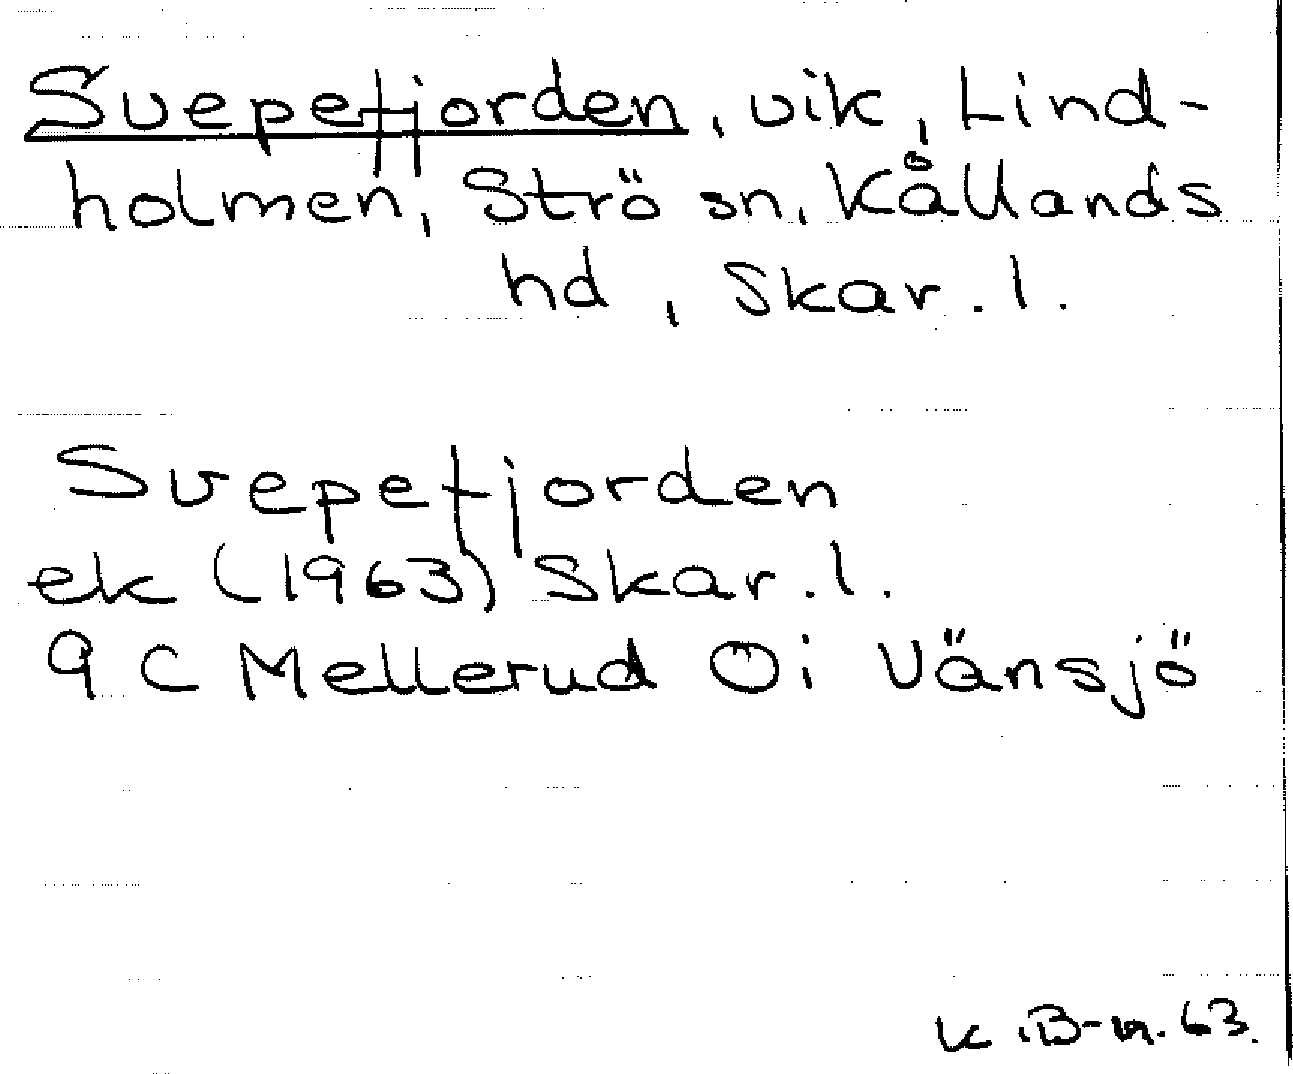 Svepefjorden, vik, Lind-
holmen, Strö sn, Kållands
hd, Skar. l.
Svepefjorden
ek (1963) Skar. l.
9 C Mellerud Öi Vänsjö
K. B-m. 63.